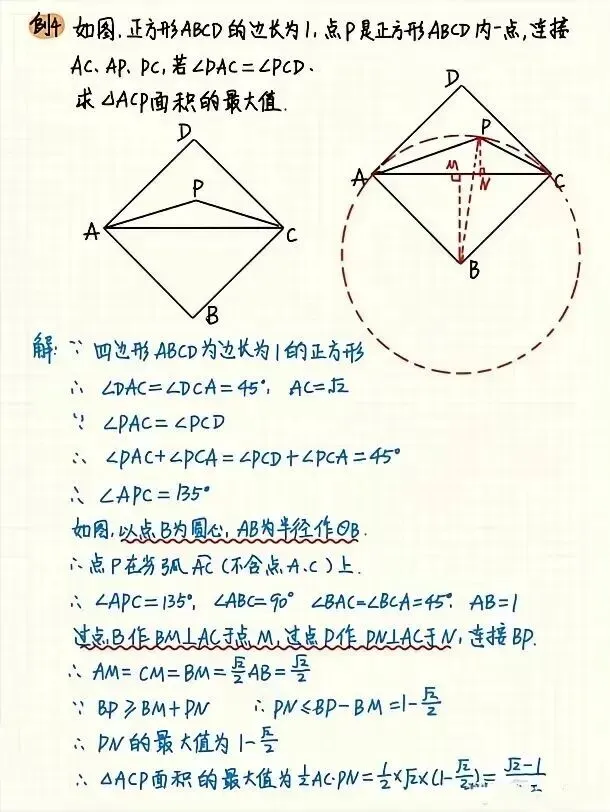 例4 如图,正方形ABCD的边长为1,点P是正方形ABCD内一点,连接
AC、AP、PC,若∠PAC=∠PCD、
求△ACP面积的最大值.
D
P
A
C
B
D
P
A
M
N
C
B
解: ∵ 四边形ABCD为边长为1的正方形
∴ ∠DAC=∠DCA=45°, AC=√2
∵ ∠PAC=∠PCD
∴ ∠PAC+∠PCA=∠PCD+∠PCA=45°
∴ ∠APC=135°
如图,以点B为圆心,AB为半径作⊙B.
∴点P在劣弧AC(不含点A、C)上.
∴ ∠APC=135°, ∠ABC=90° ∠BAC=∠BCA=45°, AB=1
过点B作BM⊥AC于点M,过点P作PN⊥AC于N,连接BP.
∴ AM=CM=BM=√2/2AB=√2/2
∵ BP≥BM+PN ∴PN≤BP-BM=1-√2/2
∴ PN的最大值为1-√2/2
∴ △ACP面积的最大值为1/2AC·PN=1/2×√2×(1-√2/2)=(√2-1)/2